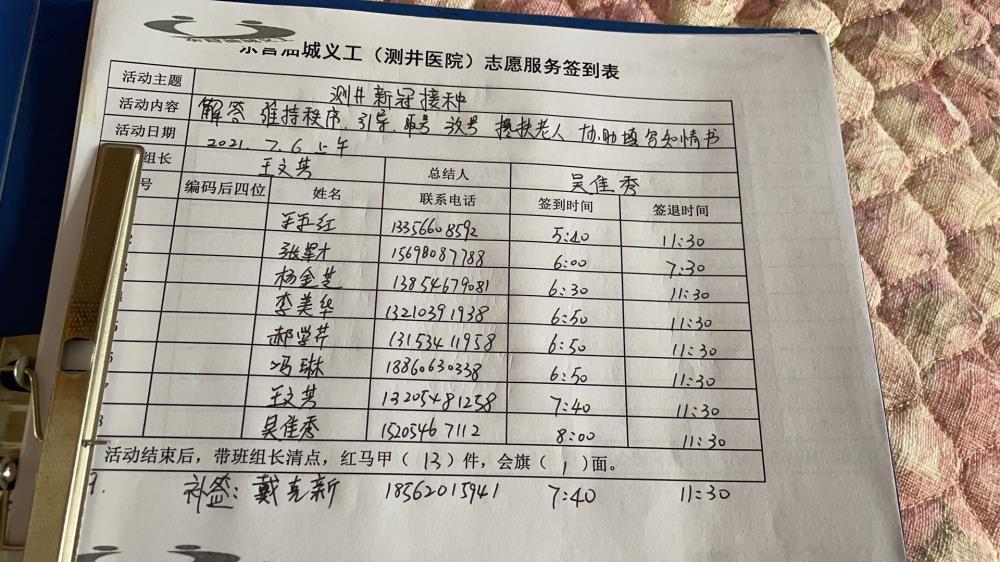 东营油城义工（测井医院）志愿服务签到表
活动主题 测井新冠接种
活动内容 解答 维持秩序、引导、取号 放号 搀扶老人 协助填写知情书
活动日期 2021. 7. 6 上午
组长 王文英 总结人 吴佳秀
号 编码后四位 姓名 联系电话 签到时间 签退时间
13356608592 5:40 11:30
2 张军才 15698087788 6:00 7:30
3 杨金芝 13854679081 6:30 11:30
李美华 13210391938 6:50 11:30
5 郝学芹 13153411958 6:50 11:30
6 冯琳 18860630338 6:50 11:30
7 王文英 13205481258 7:40 11:30
8 吴佳秀 15205467112 8:00 11:30
活动结束后，带班组长清点，红马甲（ 13 ）件，会旗（ 1 ）面。
9. 补签：戴克新 18562015941 7:40 11:30